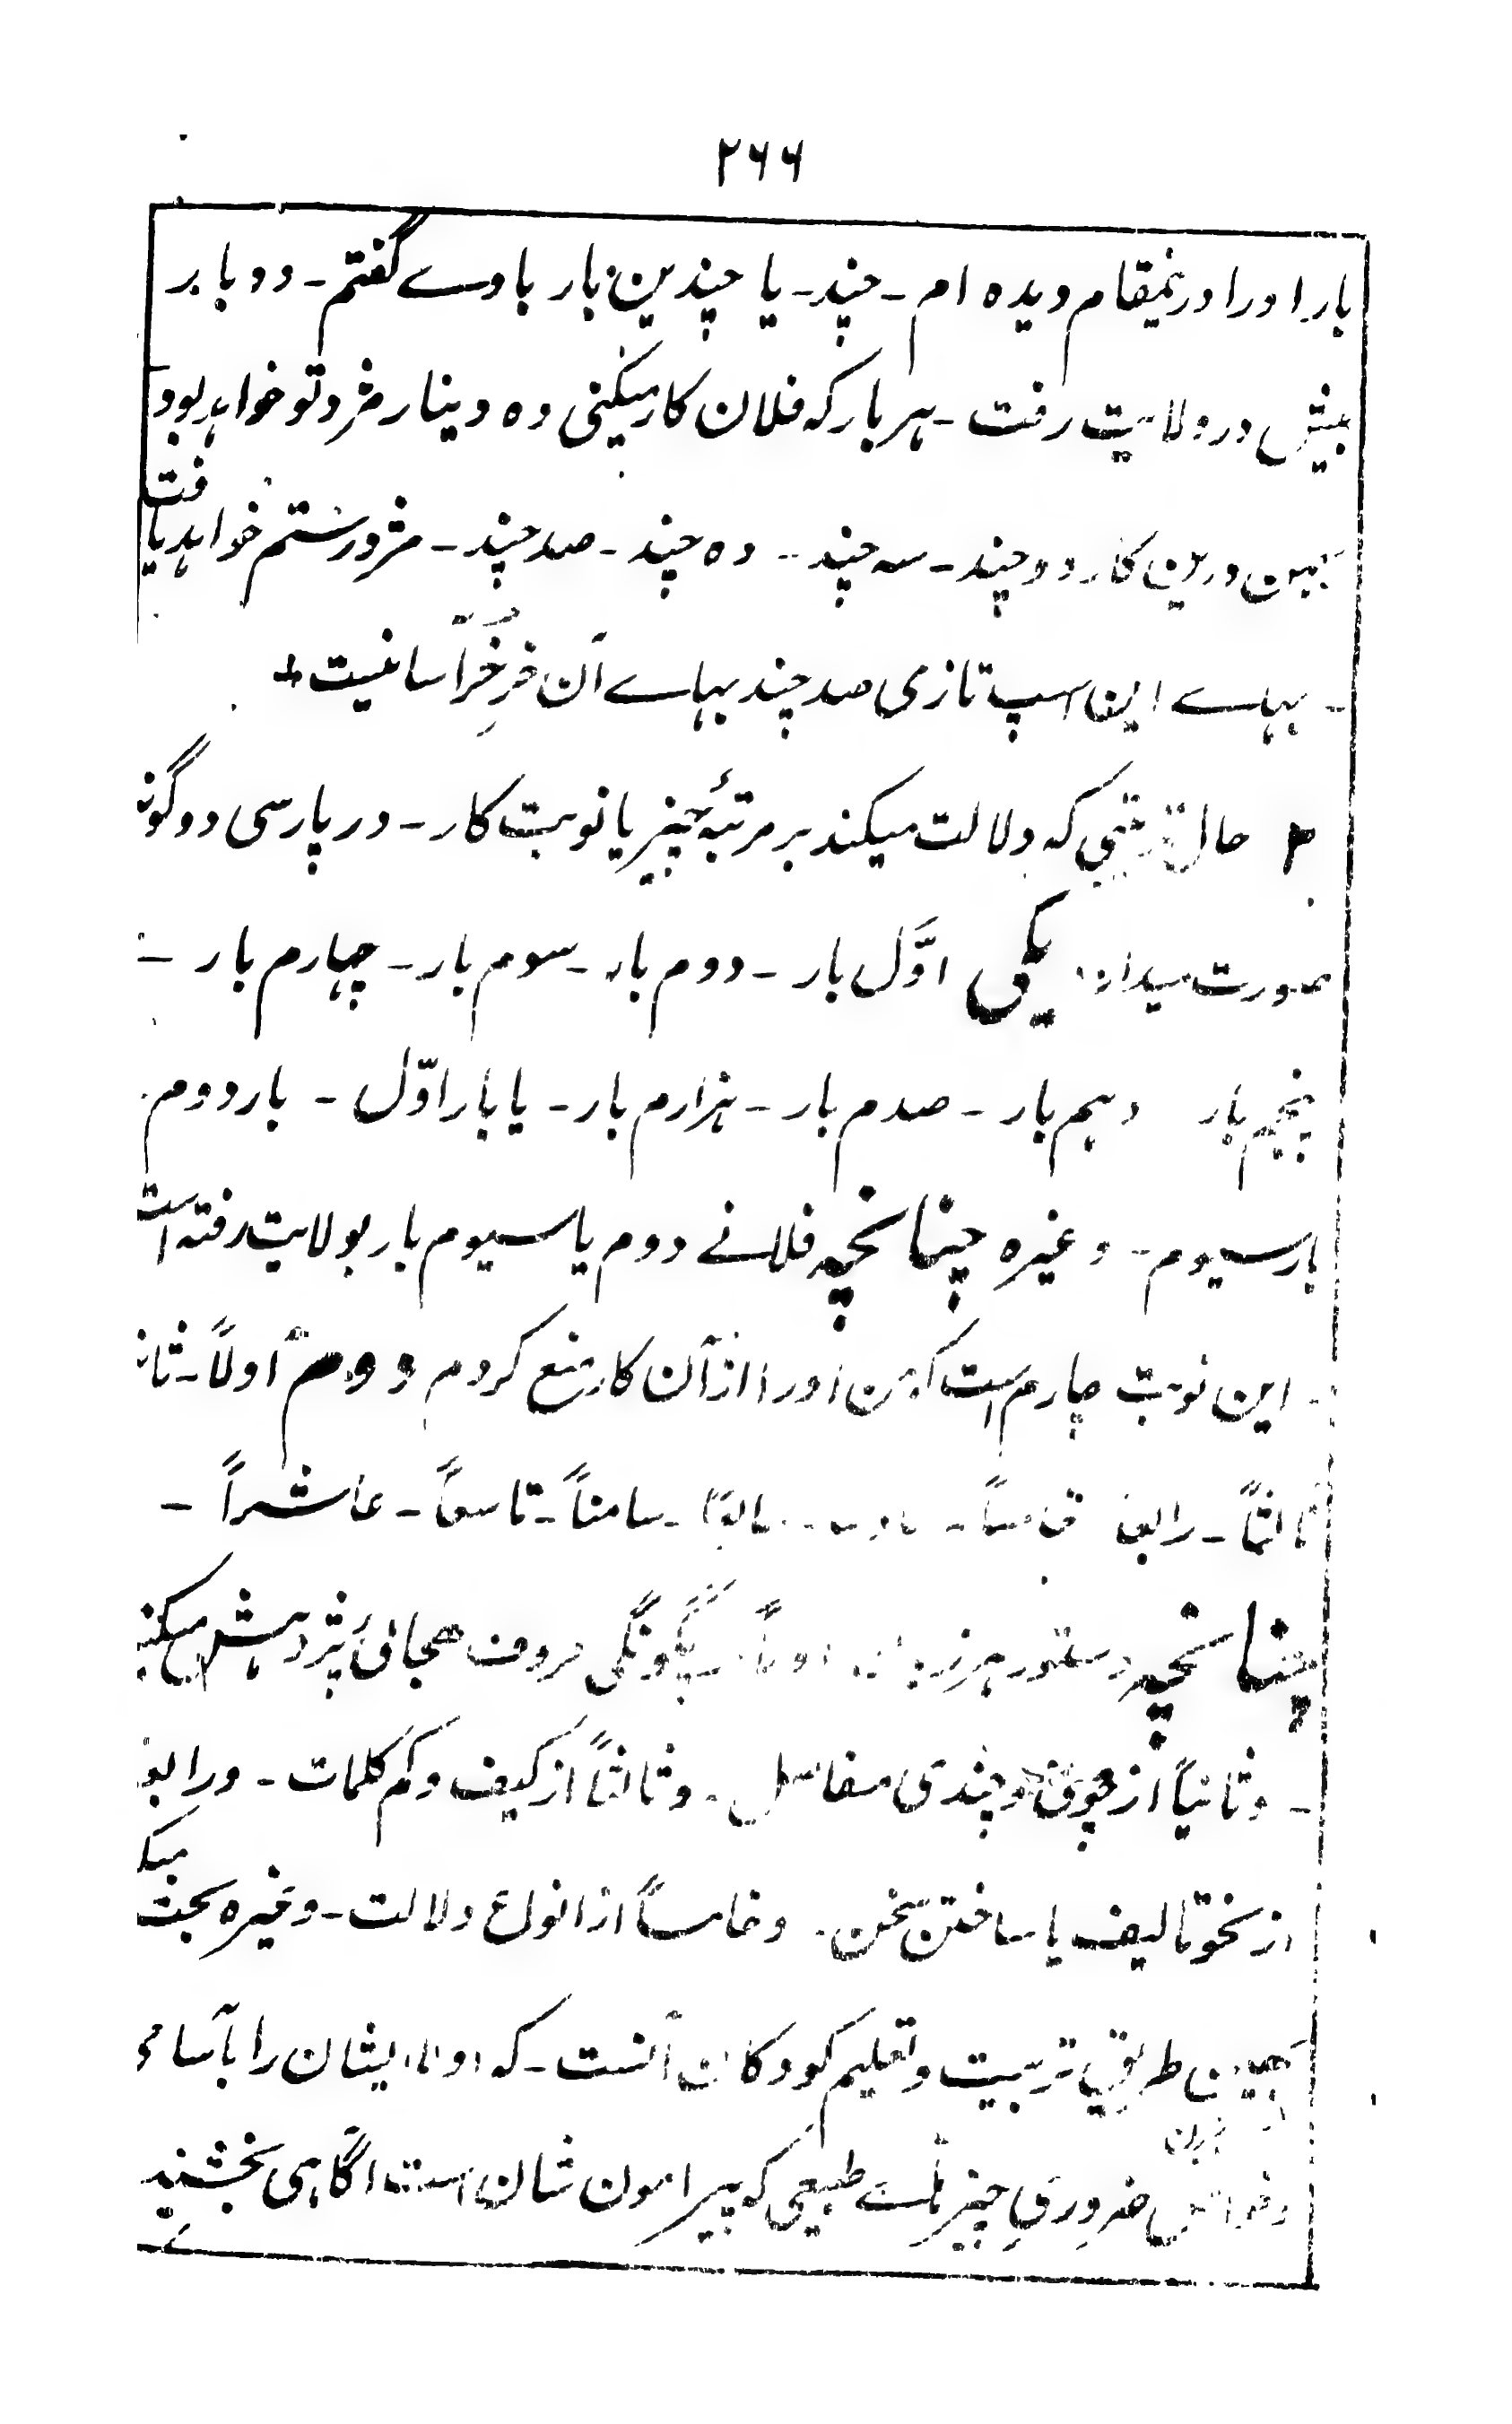 ۲۶۶
بار اورا درینمقام دیده ام ـ چند ـ یا چندین بار باوے گفتم ـ دو بار
پیش در ولایت رفت ـ هر بار که فلان کار میکنی ده دینار مزد تو خواهد بود
همین درین کار دو چند ـ سه چند ـ ده چند ـ صد چند ـ مزد رستم خواهد یافت
ـ بهاے این اسپ تازی صد چند بهاے آن خرِ خُراسانیست +
۲ حال ترتیبی که دلالت میکند بر مرتبۂ چیز یا نوبت کار ـ در پارسی دو گونه
صورت میدارد یکی اوّل بار ـ دوم بار ـ سوم بار ـ چهارم بار ـ
پنجم بار دهم بار ـ صدم بار ـ هزارم بار ـ یا بار اوّل ـ بار دوم
بار سیوم ـ وغیره چنانچه فلانے دوم یا سیوم بار بولایت رفته است
ـ این نوبت چارم است که من اورا از آن کار منع کردم دوم اولاً ـ ثانیاً
ثالثاً ـ رابعاً خامساً ـ ـ سامناً ـ تاسعاً ـ عاشراً ـ
چنانچه دستور هر زبان اولاً از چگونگی حروف هجائی پژوهش میکند
ـ وثانیاً از چونی و چندی مفاصل ـ وثالثاً از کیف و کم کلمات ـ ورابعاً
از نحو تالیف یا ساختن سخن ـ وخامساً از انواع دلالت ـ وغیره بحث میکند
همچنین طریقِ تربیت وتعلیم کودکان آنست ـ که اولاً ایشان را بآسامی
وخواص ضروریِ چیزهاے طبیعی که پیرامون شان است آگاهی بخشند